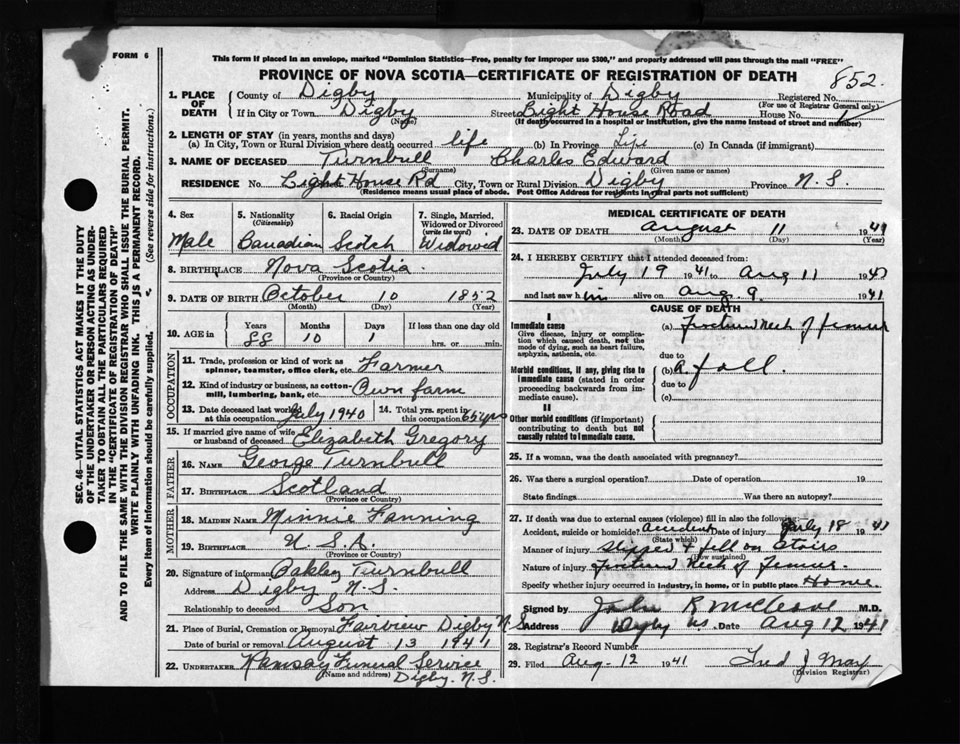 FORM 6
This form if placed in an envelope, marked "Dominion Statistics—Free, penalty for improper use $300," and properly addressed will pass through the mail "FREE"
PROVINCE OF NOVA SCOTIA—CERTIFICATE OF REGISTRATION OF DEATH
852
1. PLACE OF DEATH
County of Digby Municipality of Digby Registered No.
(For use of Registrar General only)
If in City or Town Digby Street Light House Road House No.
(Name) (If death occurred in a hospital or institution, give the name instead of street and number)
2. LENGTH OF STAY (in years, months and days)
(a) In City, Town or Rural Division where death occurred life (b) In Province Life (c) In Canada (if immigrant)
3. NAME OF DECEASED Turnbull Charles Edward
(Surname) (Given name or names)
RESIDENCE No. Light House Rd City, Town or Rural Division Digby Province N.S.
(Residence means usual place of abode. Post Office Address for residents in rural parts not sufficient)
4. Sex Male
5. Nationality (Citizenship) Canadian
6. Racial Origin Scotch
7. Single, Married, Widowed or Divorced (write the word) Widowid
8. BIRTHPLACE Nova Scotia
(Province or Country)
9. DATE OF BIRTH October 10 1852
(Month) (Day) (Year)
10. AGE in Years 88 Months 10 Days 1 If less than one day old hrs. or min.
OCCUPATION
11. Trade, profession or kind of work as spinner, teamster, office clerk, etc. Farmer
12. Kind of industry or business, as cotton-mill, lumbering, bank, etc. Own farm
13. Date deceased last worked at this occupation July 1940
14. Total yrs. spent in this occupation yrs
15. If married give name of wife or husband of deceased Elizabeth Gregory
FATHER
16. NAME George Turnbull
17. BIRTHPLACE Scotland
(Province or Country)
MOTHER
18. MAIDEN NAME Minnie Fanning
19. BIRTHPLACE U.S.A.
(Province or Country)
20. Signature of informant Oakley Turnbull
Address Digby N.S.
Relationship to deceased Son
21. Place of Burial, Cremation or Removal Fairview Digby N S
Date of burial or removal August 13 1941
22. UNDERTAKER Ramsay Funeral Service
(Name and address) Digby. N.S.
MEDICAL CERTIFICATE OF DEATH
23. DATE OF DEATH August 11 1941
(Month) (Day) (Year)
24. I HEREBY CERTIFY that I attended deceased from:
July 19 1941 to Aug 11 1941
and last saw him alive on Aug. 9. 1941
CAUSE OF DEATH
I
Immediate cause
Give disease, injury or complication which caused death, not the mode of dying, such as heart failure, asphyxia, asthenia, etc.
(a) Fractured Neck of femur
due to
Morbid conditions, if any, giving rise to immediate cause (stated in order proceeding backwards from immediate cause).
(b) A fall.
due to
(c)
II
Other morbid conditions (if important) contributing to death but not causally related to immediate cause.
25. If a woman, was the death associated with pregnancy?
26. Was there a surgical operation? Date of operation 19
State findings Was there an autopsy?
27. If death was due to external causes (violence) fill in also the following:
Accident, suicide or homicide? Accident Date of injury July 18 1941
(State which)
Manner of injury Slipped & fell on Stairs
(How sustained)
Nature of injury Fractured Neck of femur.
Specify whether injury occurred in industry, in home, or in public place Home
Signed by John R McCleave M.D.
Address Digby N.S. Date Aug 12 1941
28. Registrar's Record Number
29. Filed Aug-12 1941 Fred J May
(Division Registrar)
SEC. 46—VITAL STATISTICS ACT MAKES IT THE DUTY
OF THE UNDERTAKER OR PERSON ACTING AS UNDER-
TAKER TO OBTAIN ALL THE PARTICULARS REQUIRED
IN THE "CERTIFICATE OF REGISTRATION OF DEATH"
AND TO FILE THE SAME WITH THE DIVISION REGISTRAR WHO SHALL ISSUE THE BURIAL PERMIT.
WRITE PLAINLY WITH UNFADING INK. THIS IS A PERMANENT RECORD.
Every item of information should be carefully supplied. (See reverse side for instructions.)